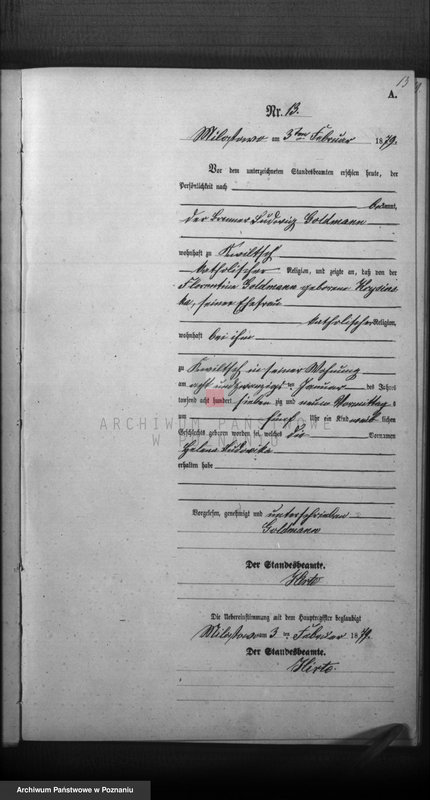 13
A.
Nr. 13.
Milostowo am 3ten Februar 1879.
Vor dem unterzeichneten Standesbeamten erschien heute, der
Persönlichkeit nach
bekannt,
der Brenner Ludwig Goldmann
wohnhaft zu Kwiltsch
katholischer Religion, und zeigte an, daß von der
Florentine Goldmann geborene
ka, seiner Ehefrau
katholischer Religion,
wohnhaft bei ihm
zu Kwiltsch in seiner Wohnung
am acht und zwanzigsten Januar des Jahres
tausend acht hundert sieben zig und neun Vormittag s
um fünf Uhr ein Kind weib lichen
Geschlechts geboren worden sei, welches die Vornamen
Helena Ludowika
erhalten habe
ARCHIWUM PAŃSTWOWE
W POZNANIU
Vorgelesen, genehmigt und unterschrieben
Goldmann
Der Standesbeamte.
Hirte
Die Uebereinstimmung mit dem Hauptregister beglaubigt
Milostowo am 3 ten Februar 1879.
Der Standesbeamte.
Hirte.
Archiwum Państwowe w Poznaniu